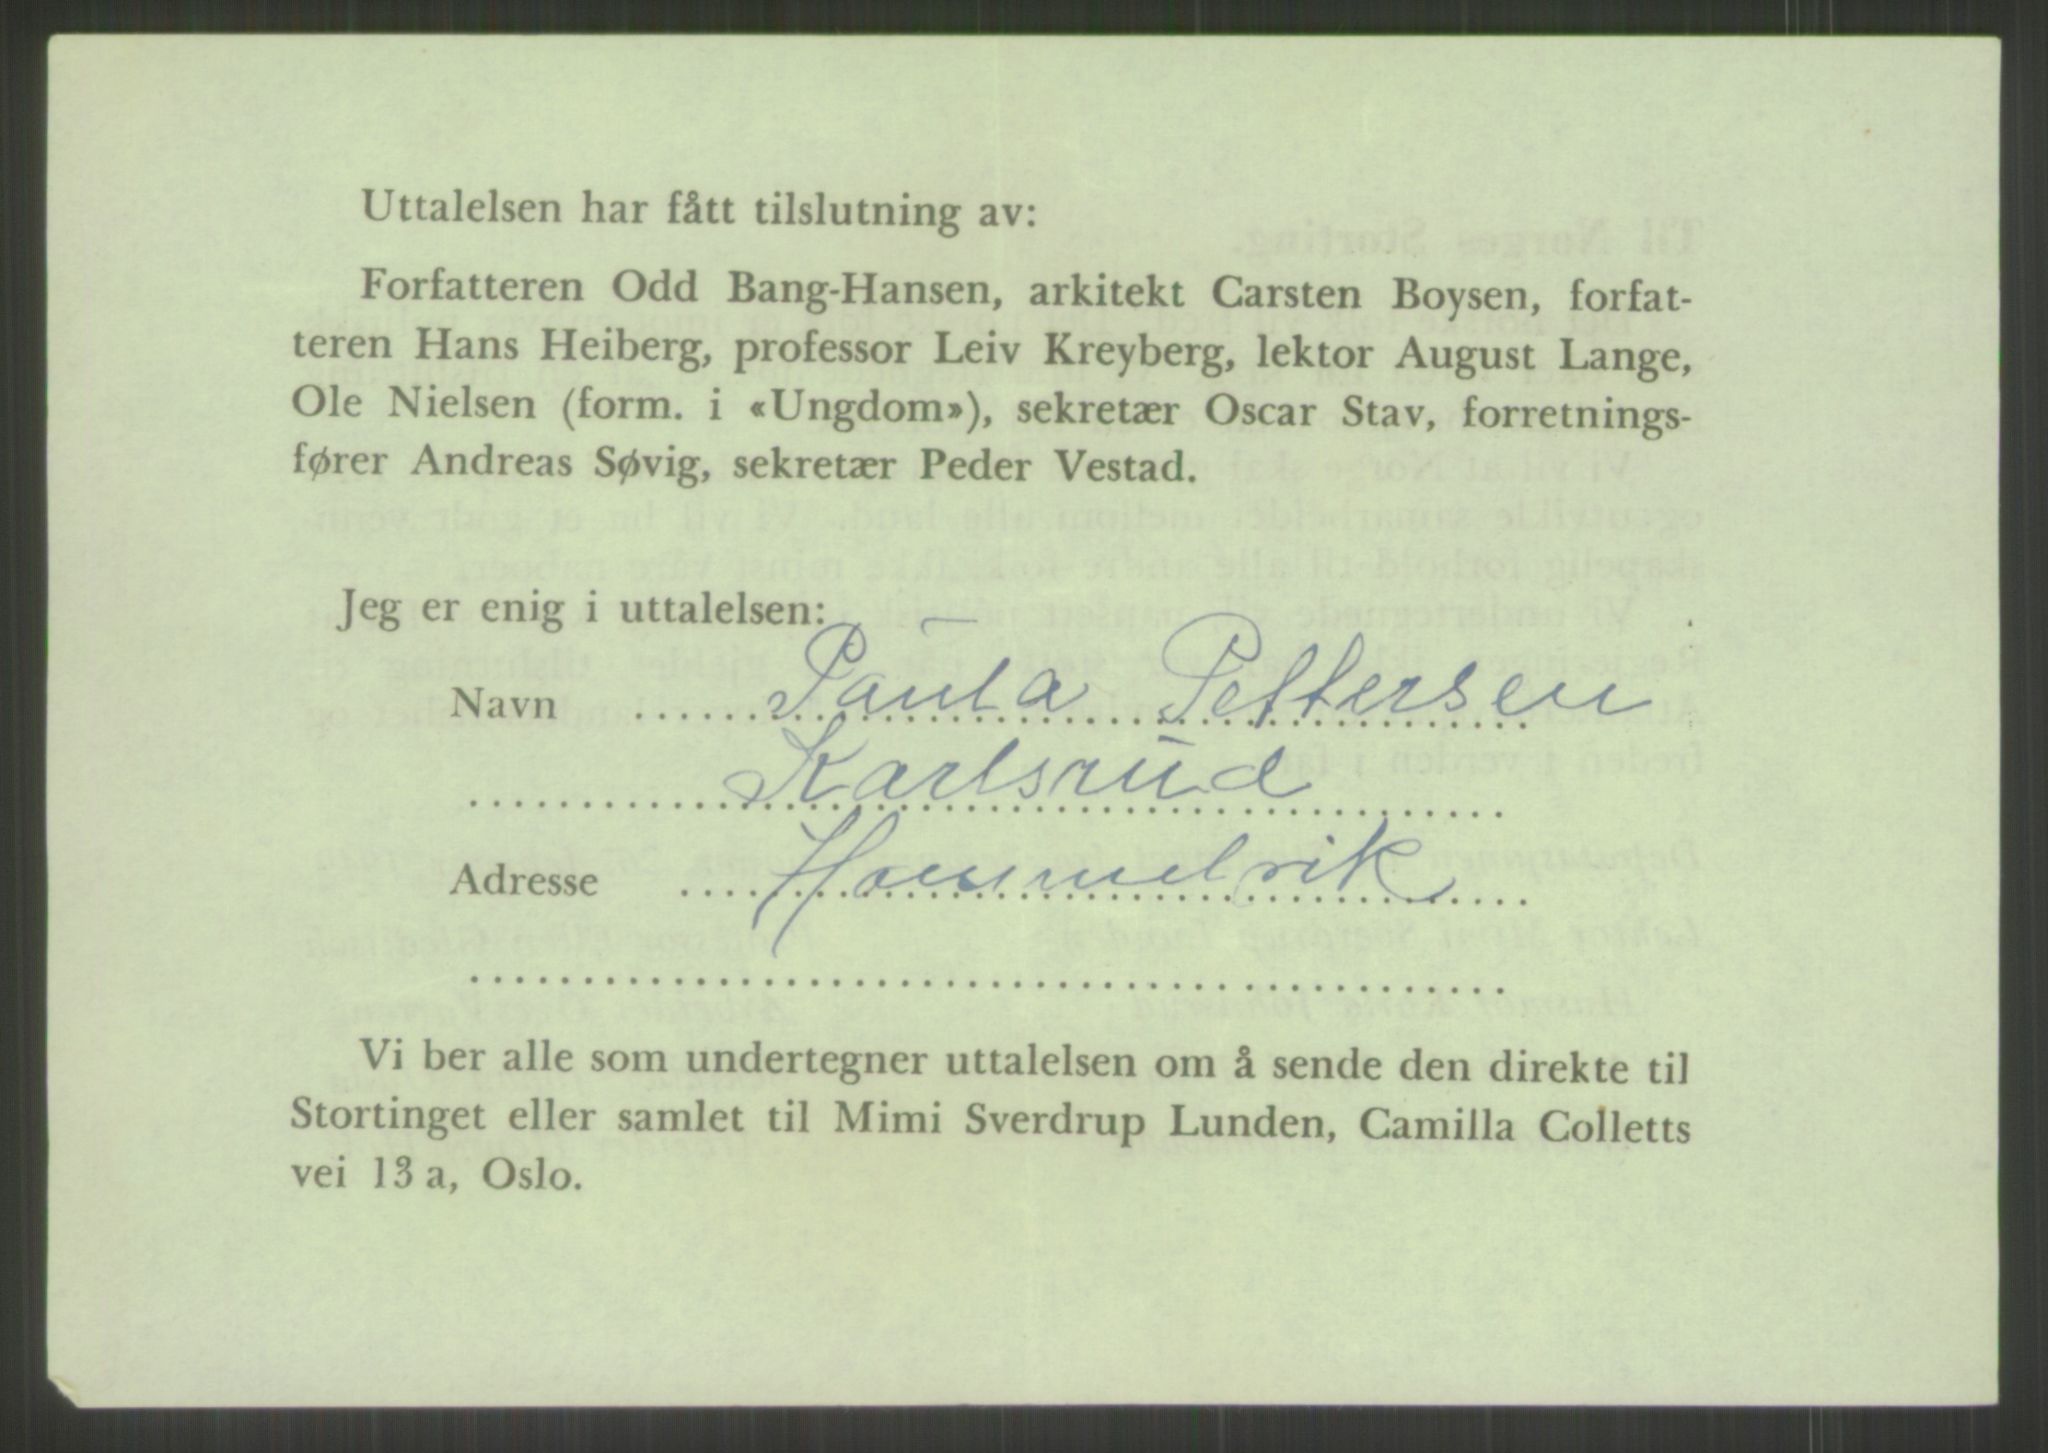 Uttalelsen har fått tilslutning av:
Forfatteren Odd Bang-Hansen, arkitekt Carsten Boysen, forfat-
teren Hans Heiberg, professor Leiv Kreyberg, lektor August Lange,
Ole Nielsen (form. i «Ungdom»), sekretær Oscar Stav, forretnings-
fører Andreas Søvig, sekretær Peder Vestad.
Jeg er enig i uttalelsen:
Navn Paula Pettersen
Karlsrud
Adresse Hommelvik
Vi ber alle som undertegner uttalelsen om å sende den direkte til
Stortinget eller samlet til Mimi Sverdrup Lunden, Camilla Colletts
vei 13 a, Oslo.